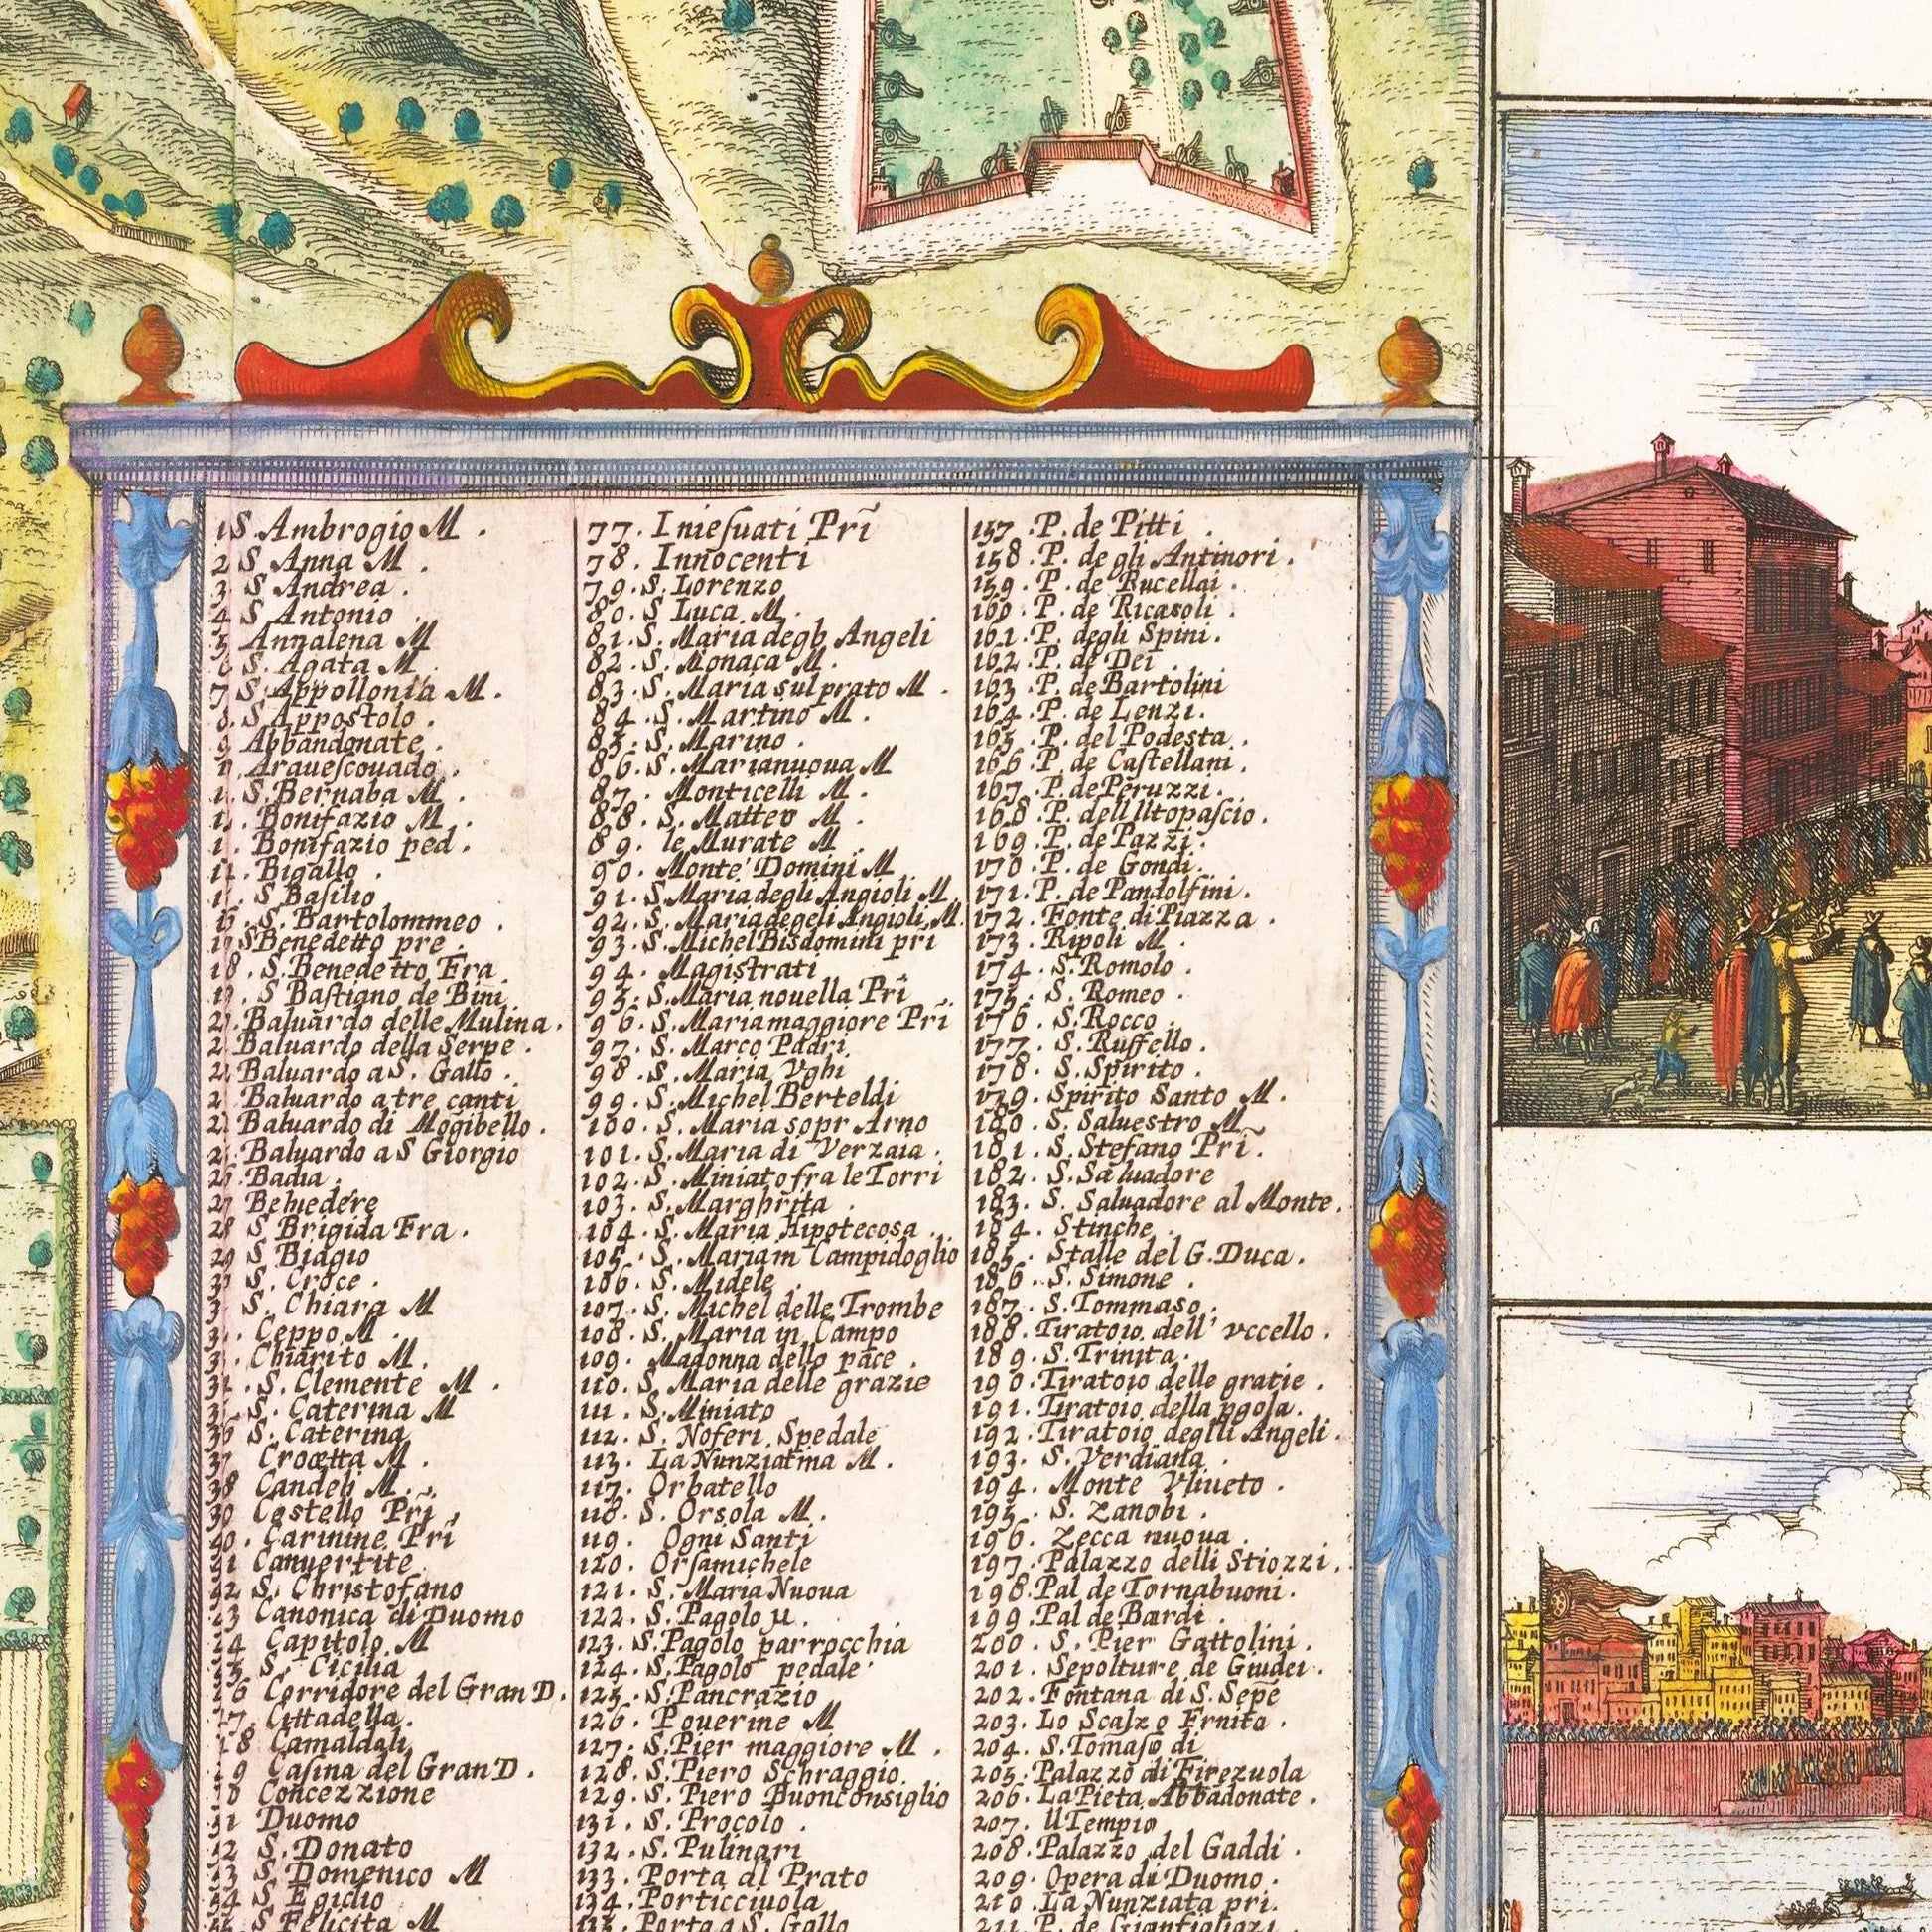 1 S. Ambrogio M.
2 S. Anna M.
3 S. Andrea.
4 S. Antonio
5 Annalena M
6 S. Agata M.
7 S. Appollonia M.
8. S Appostolo.
9 Abbandonate.
Araueſcouado.
1. S. Bernaba M.
1. Bonifazio M.
1. Bonifazio ped.
1. Bigallo.
1. S Baſilio
16. S. Bartolommeo.
17 S Benedetto pre.
18. S. Benedetto Fra
19. S Baſtiano de Bini
2. Baluardo delle Mulina.
2 Baluardo della Serpe.
2 Baluardo a S. Gallo.
2 Baluardo a tre canti
2 Baluardo di Mogibello.
2 Baluardo a S Giorgio
26 Badia.
27 Beluedere
28 S Brigida Fra.
29 S Biagio
3 S. Croce.
3 S. Chiara M
3. Ceppo M.
3. Chiarito M.
3. S. Clemente M.
3 S. Caterina M
36 S. Caterina
37 Crocetta M.
38 Candeli M.
39 Cestello Pri
40. Carmine Pri
41 Conuertite
42 S. Christofano
43 Canonica di Duomo
44 Capitolo M
45 S. Cicilia
46 Corridore del Gran D.
47. Cittadella.
48 Camaldali
49 Caſina del Gran D.
50 Concezzione
51 Duomo
52 S. Donato
53 S Domenico M
54 S Egidio
55 S Felicita M
77. Inieſuati Prĩ
78. Innocenti
79. S. Lorenzo
80. S Luca M.
81. S. Maria degli Angeli
82. S. Monaca M.
83. S. Maria sul prato M.
84. S. Martino M.
85. S. Marino.
86. S. Marianuoua M
87. Monticelli M.
88. S. Matteo M.
89. le Murate M
90. Monte Domini M
91. S. Maria degli Angioli M.
92. S. Maria degeli Angioli M.
93. S. Michel Bisdomini pri
94. Magistrati
95. S. Maria nouella Pri
96. S. Maria maggiore Pri
97. S. Marco Padri
98. S. Maria Vghi
99. S. Michel Berteldi
100. S. Maria sopr Arno
101. S. Maria di Verzaia.
102. S. Miniato fra le Torri
103. S. Marghrita.
104. S. Maria Hipotecosa.
105. S. Maria in Campidoglio
106. S. Midele.
107. S. Michel delle Trombe
108. S. Maria in Campo
109. Madonna dello pace.
110. S. Maria delle grazie
111. S. Miniato
112. S. Noferi Spedale
113. La Nunziatina M.
117. Orbatello
118. S. Orsola M.
119. Ogni Santi
120. Orſamichele
121. S. Maria Nuoua
122. S. Pagolo M.
123. S. Pagolo parrocchia
124. S. Pagolo pedale
125. S. Pancrazio
126. Pouerine M
127. S. Pier maggiore M.
128. S. Piero Schraggio.
129. S. Piero Buonconsiglio
131. S. Procolo.
132. S. Pulinari
133. Porta al Prato
134. Porticciuola
135. Porta a S. Gallo
157. P. de Pitti.
158. P. de gli Antinori.
159. P. de Rucellai.
160. P. de Ricasoli.
161. P. degli Spini.
162. P. de Dei.
163. P. de Bartolini
164. P. de Lenzi.
165. P. del Podesta.
166. P. de Caſtellani.
167. P. de Peruzzi.
168. P. dell Altopaſcio.
169. P. de Pazzi.
170. P. de Gondi.
171. P. de Pandolfini.
172. Fonte di Piazza.
173. Ripoli M.
174. S. Romolo.
175. S. Romeo.
176. S. Rocco.
177. S. Ruffello.
178. S. Spirito.
179. Spirito Santo M.
180. S. Saluestro M.
181. S. Stefano Prĩ.
182. S. Saluadore
183. S. Saluadore al Monte.
184. Stinche.
185. Stalle del G. Duca.
186. S. Simone.
187. S. Tommaso.
188. Tiratoio dell' vccello.
189. S. Trinita.
190. Tiratoio delle gratie.
191. Tiratoio della pgoſa.
192. Tiratoio deglli Angeli.
193. S. Verdiana.
194. Monte Vliueto.
195. S. Zanobi.
196. Zecca nuoua.
197. Palazzo delli Stiozzi.
198. Pal de Tornabuoni.
199. Pal de Bardi.
200. S. Pier Gattolini.
201. Sepolture de Giudei.
202. Fontana di S. Sepe
203. Lo Scalzo Frnita.
204. S. Tomaſo di
205. Palazzo di Firezuola
206. La Pieta Abbadonate.
207. Il Tempio
208. Palazzo del Gaddi.
209. Opera di Duomo.
210. La Nunziata pri.
211. P. de Gianfigliazi.